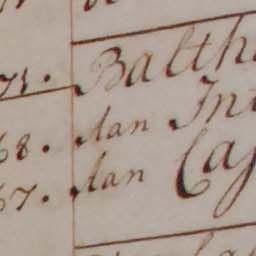 71. Balth
68. Aan Int
67. Aan Cas